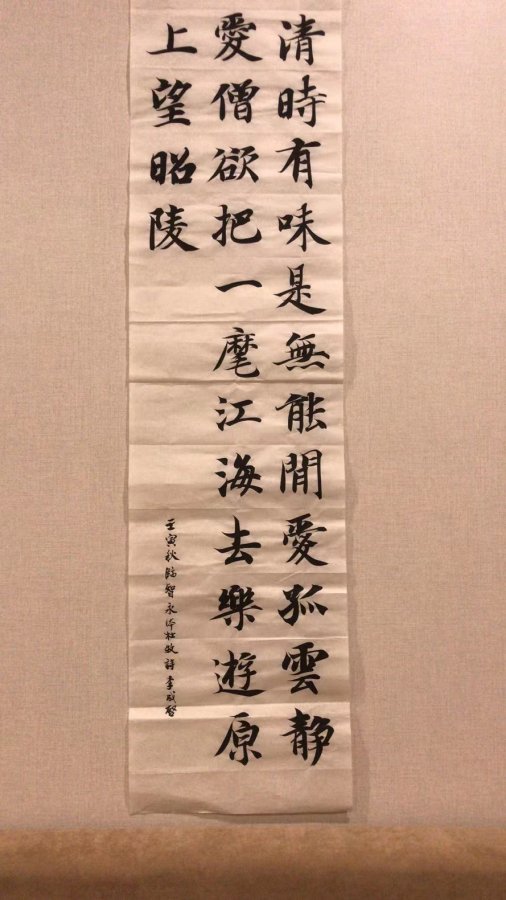 清時有味是無能閒愛孤雲靜
愛僧欲把一麾江海去樂遊原
上望昭陵
壬寅秋臨智永 杜牧詩 李